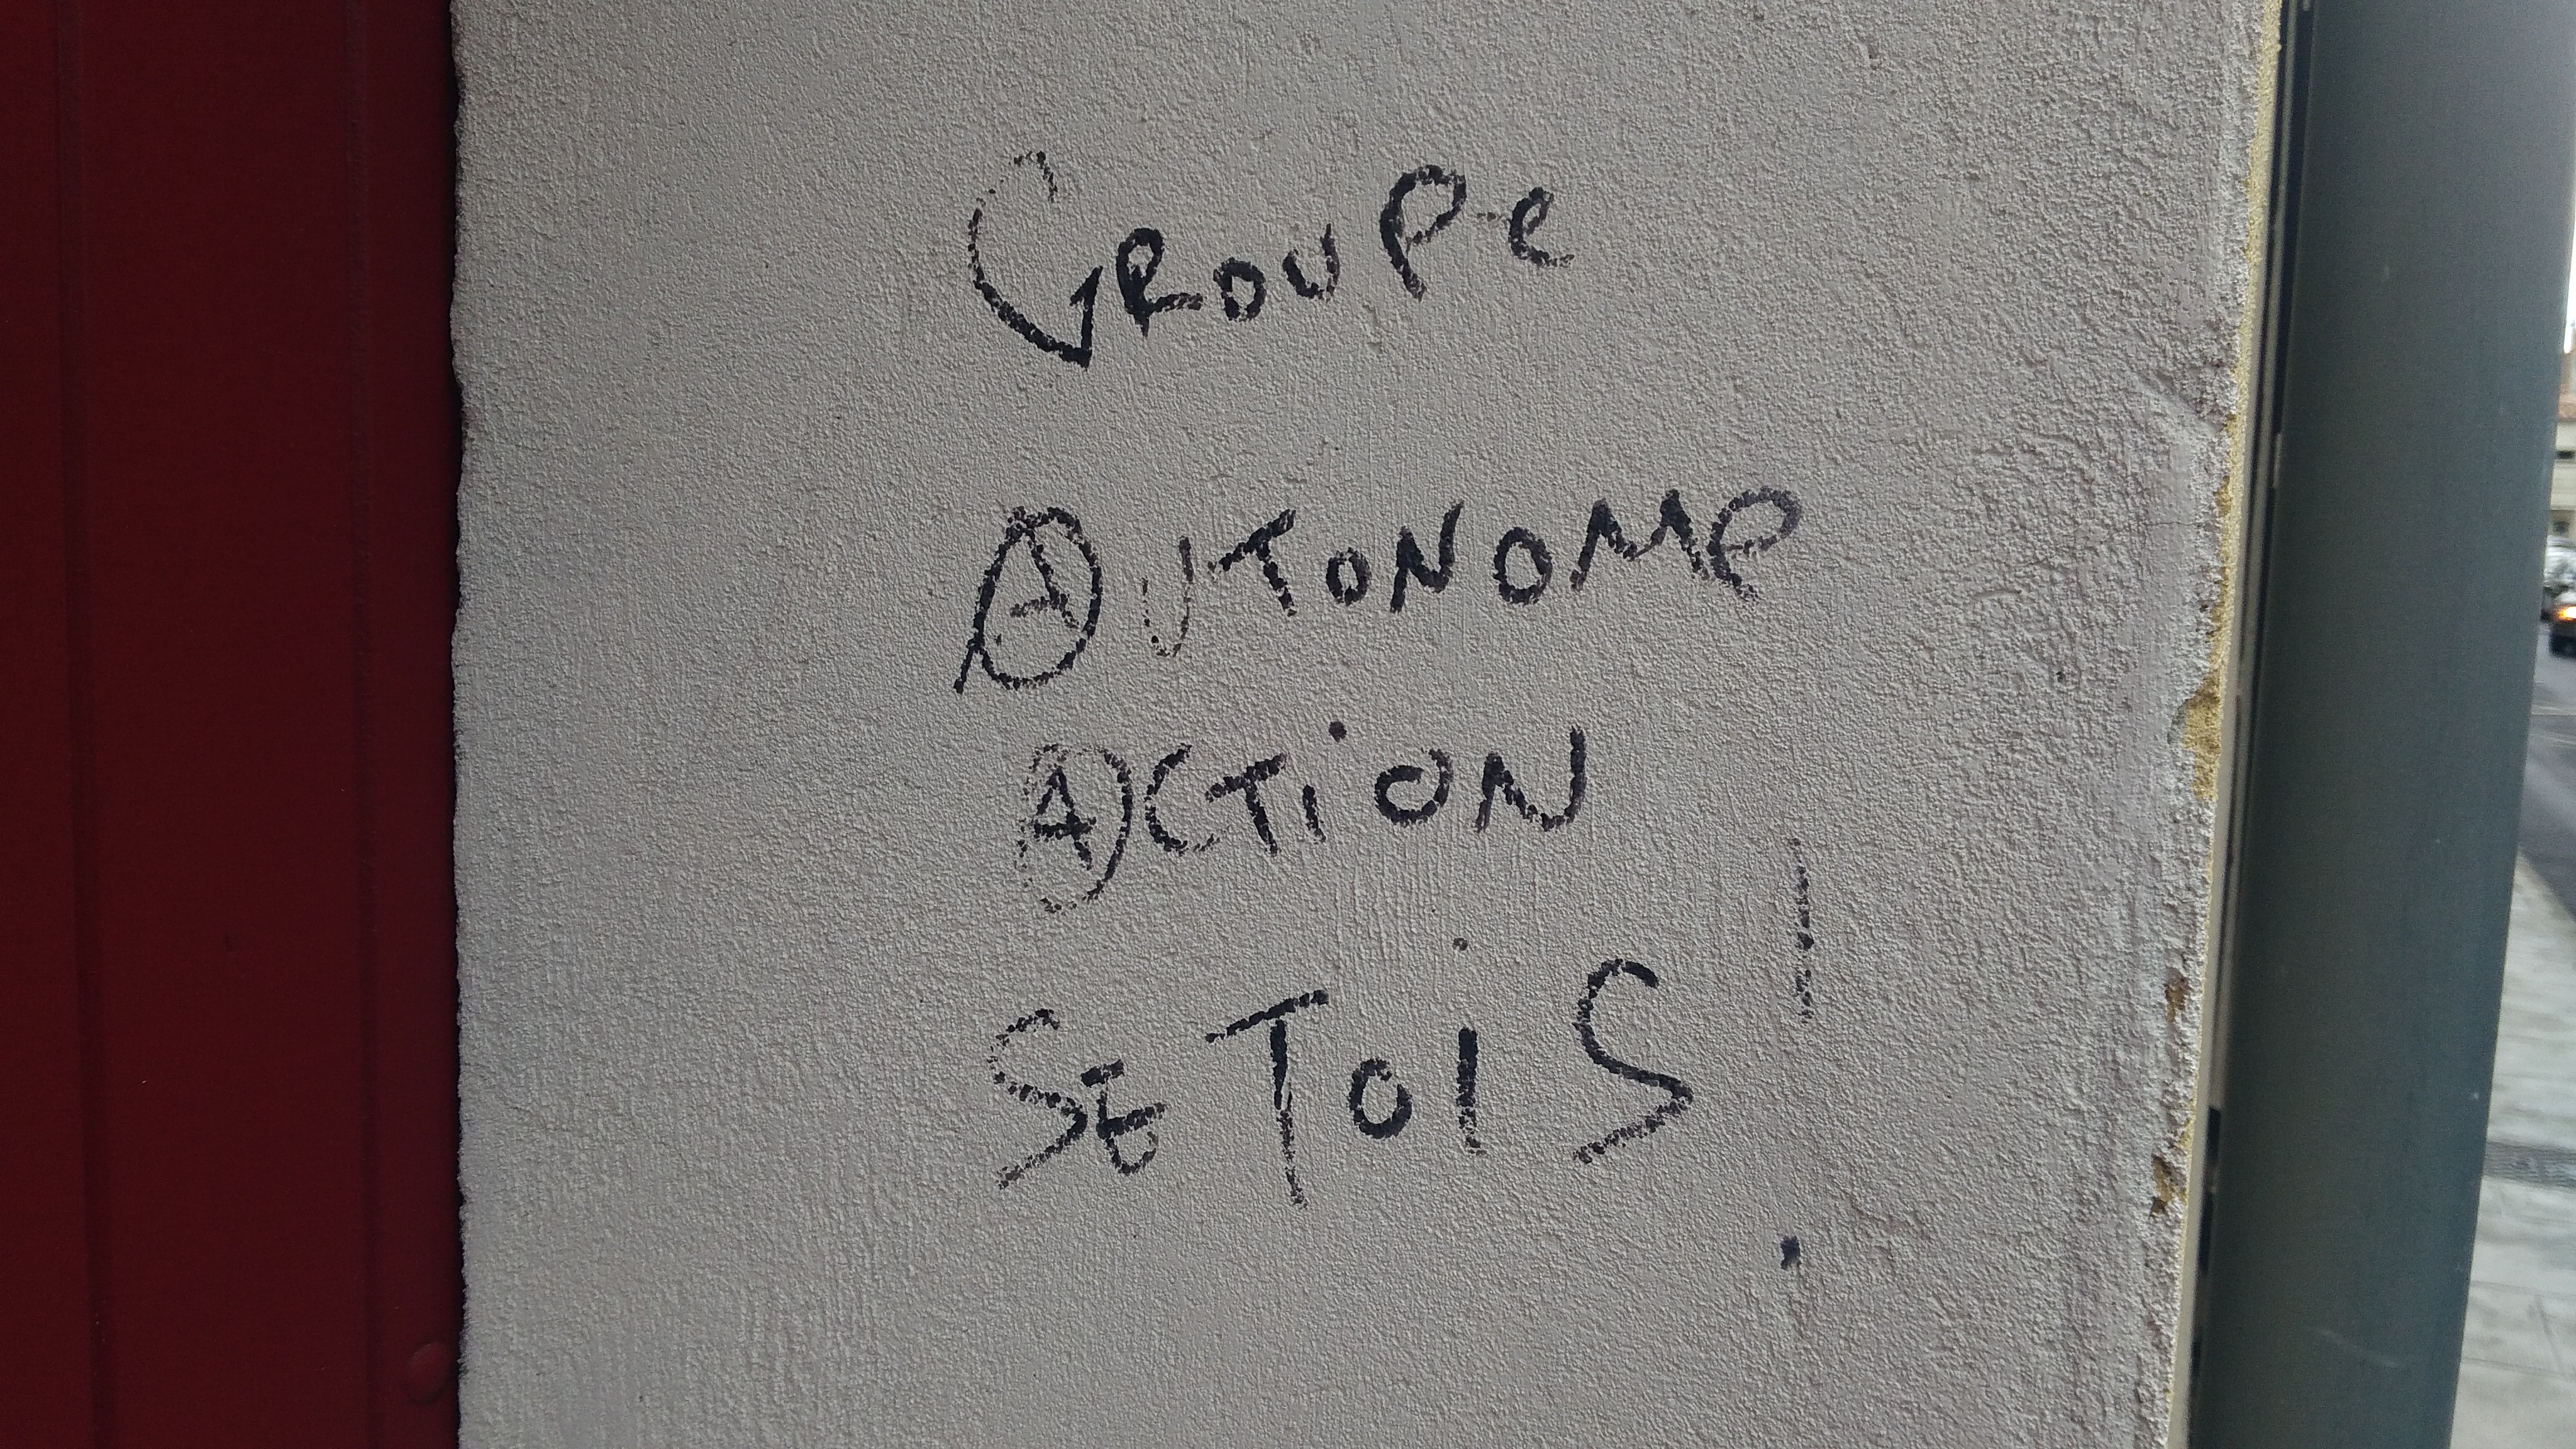 GROUPe
AUTONOMe
ACTiON
SETOIS !